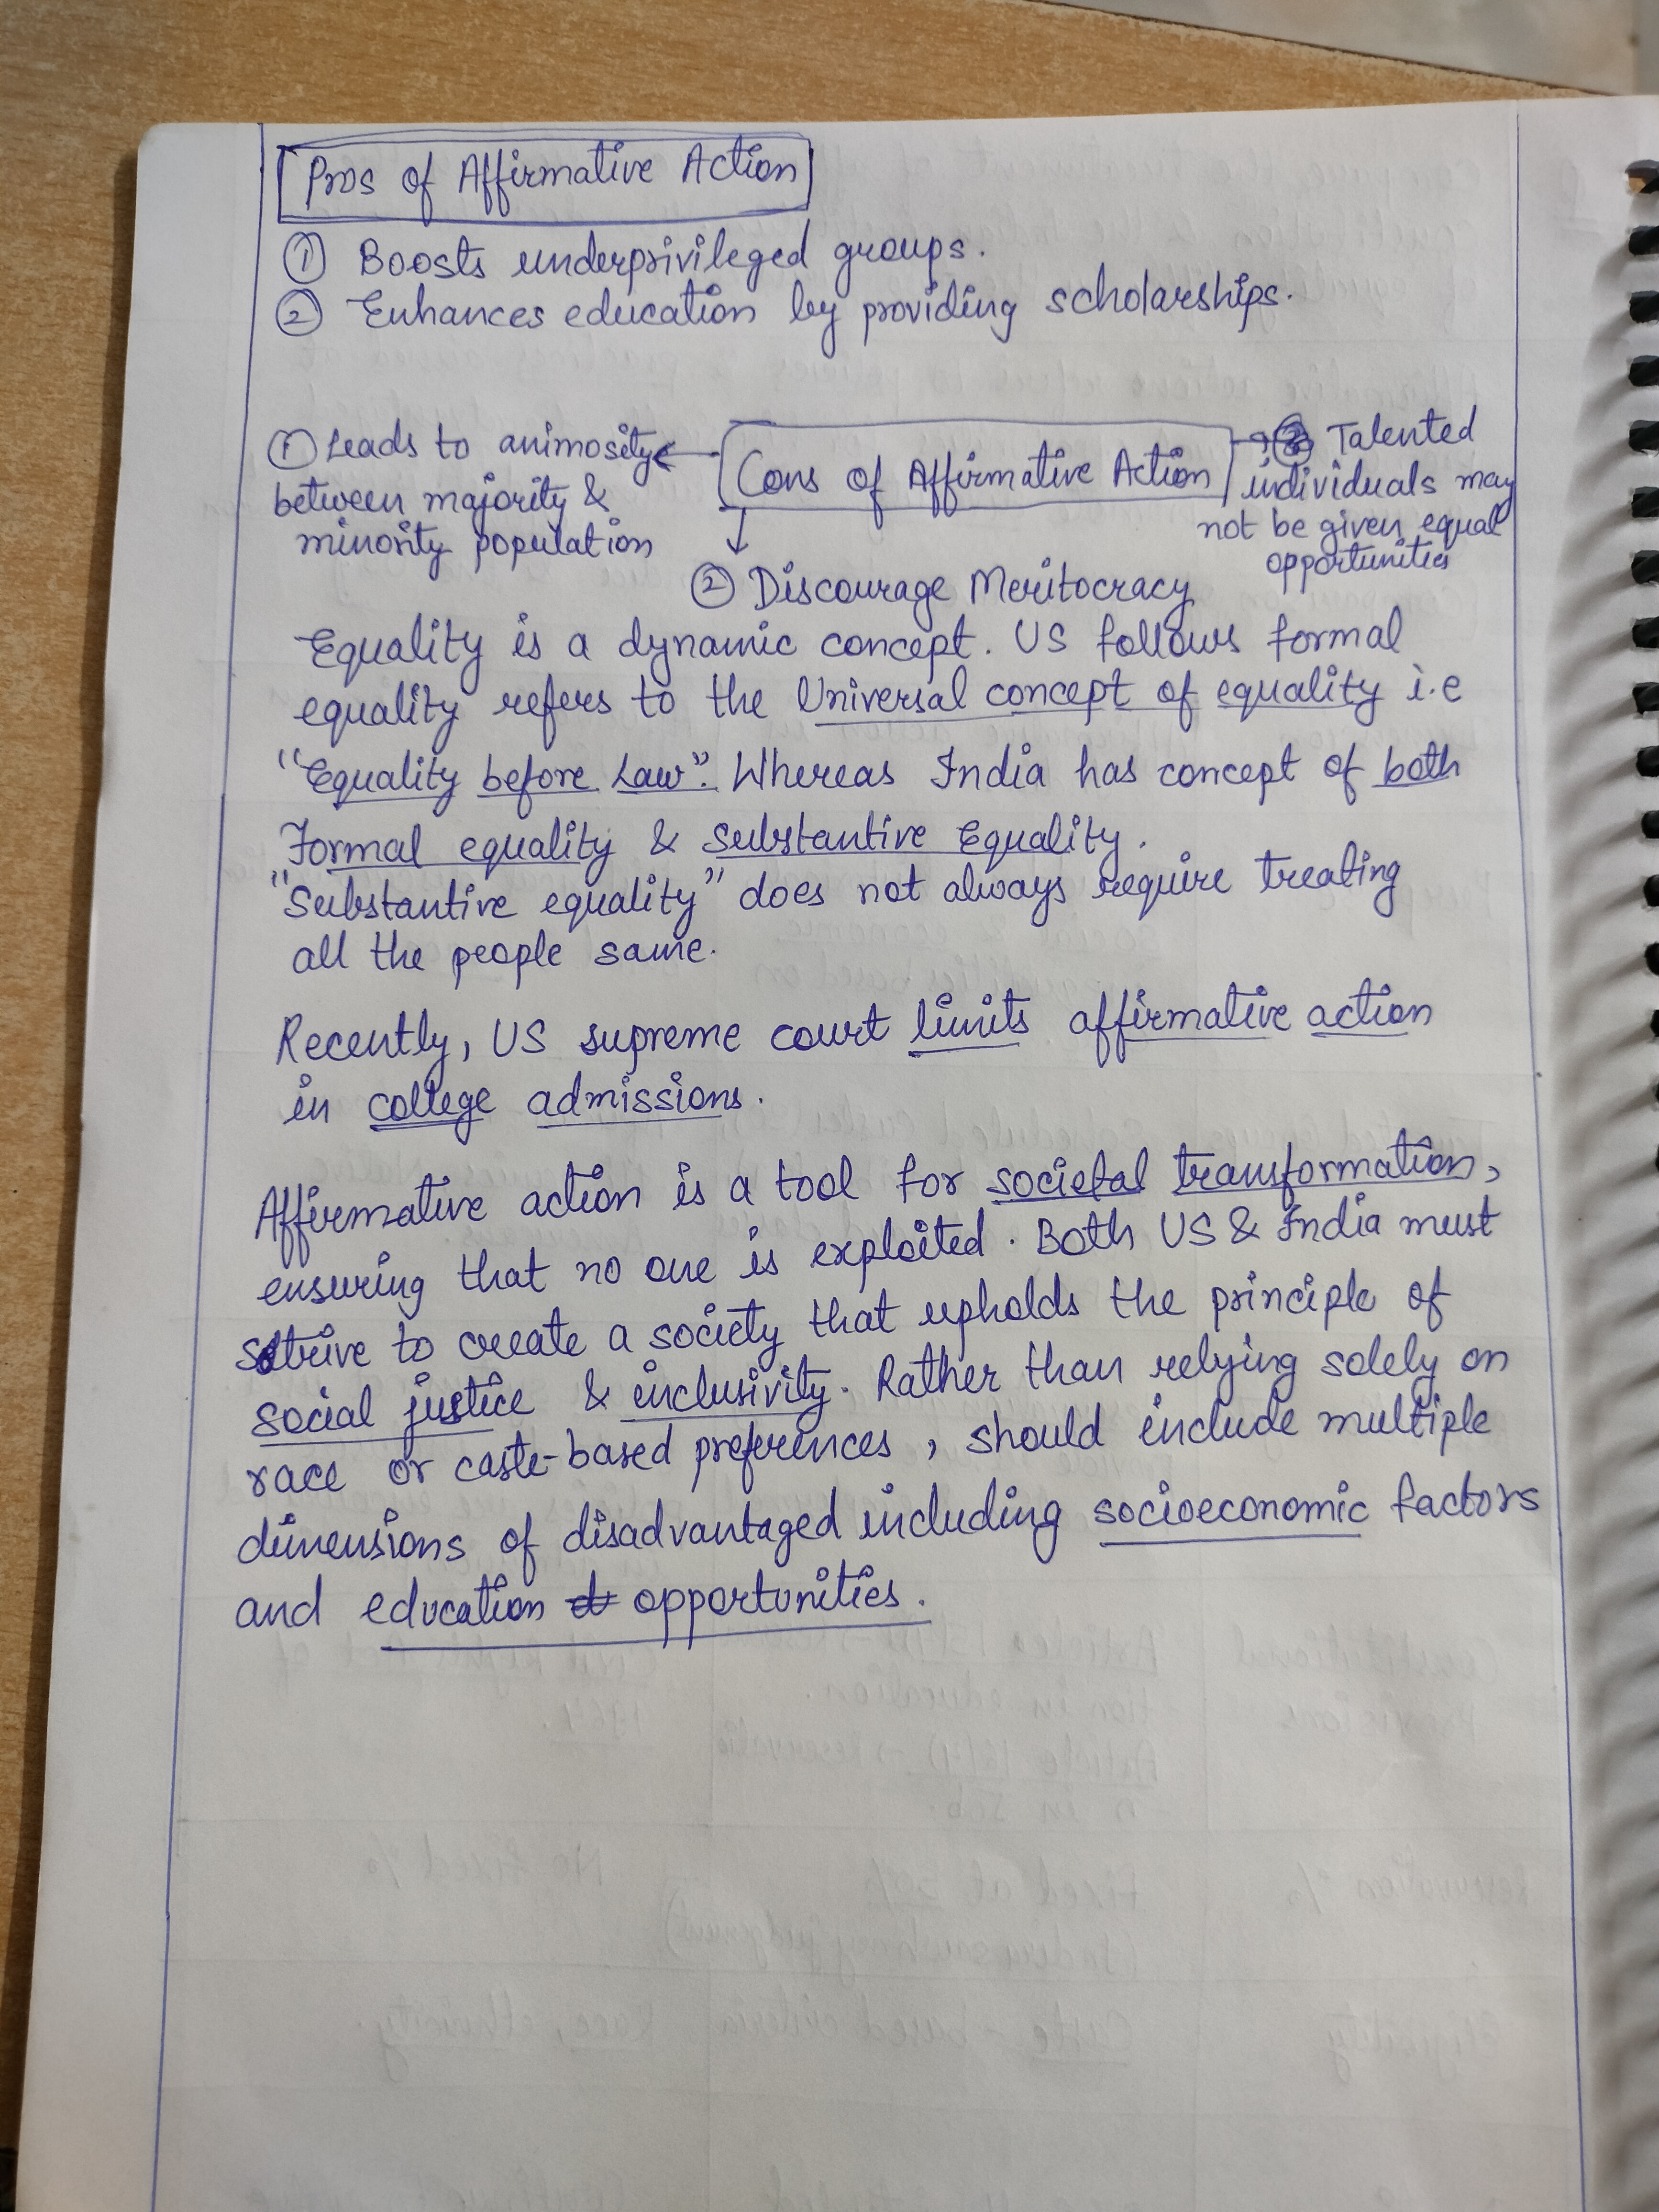 Pros of Affirmative Action
① Boosts underprivileged groups.
② Enhances education by providing scholarships.
① Leads to animosity
between majority &
minority population
Cons of Affirmative Action
② Discourage Meritocracy
③ Talented
individuals may
not be given equal
opportunities
Equality is a dynamic concept. US follows formal
equality refers to the Universal concept of equality i.e
"Equality before Law". Whereas India has concept of both
Formal equality & Substantive Equality.
"Substantive equality" does not always require treating
all the people same.
Recently, US supreme court limits affirmative action
in college admissions.
Affirmative action is a tool for societal transformation,
ensuring that no one is exploited. Both US & India must
strive to create a society that upholds the principle of
social justice & inclusivity. Rather than relying solely on
race or caste-based preferences, should include multiple
dimensions of disadvantaged including socioeconomic factors
and education opportunities.